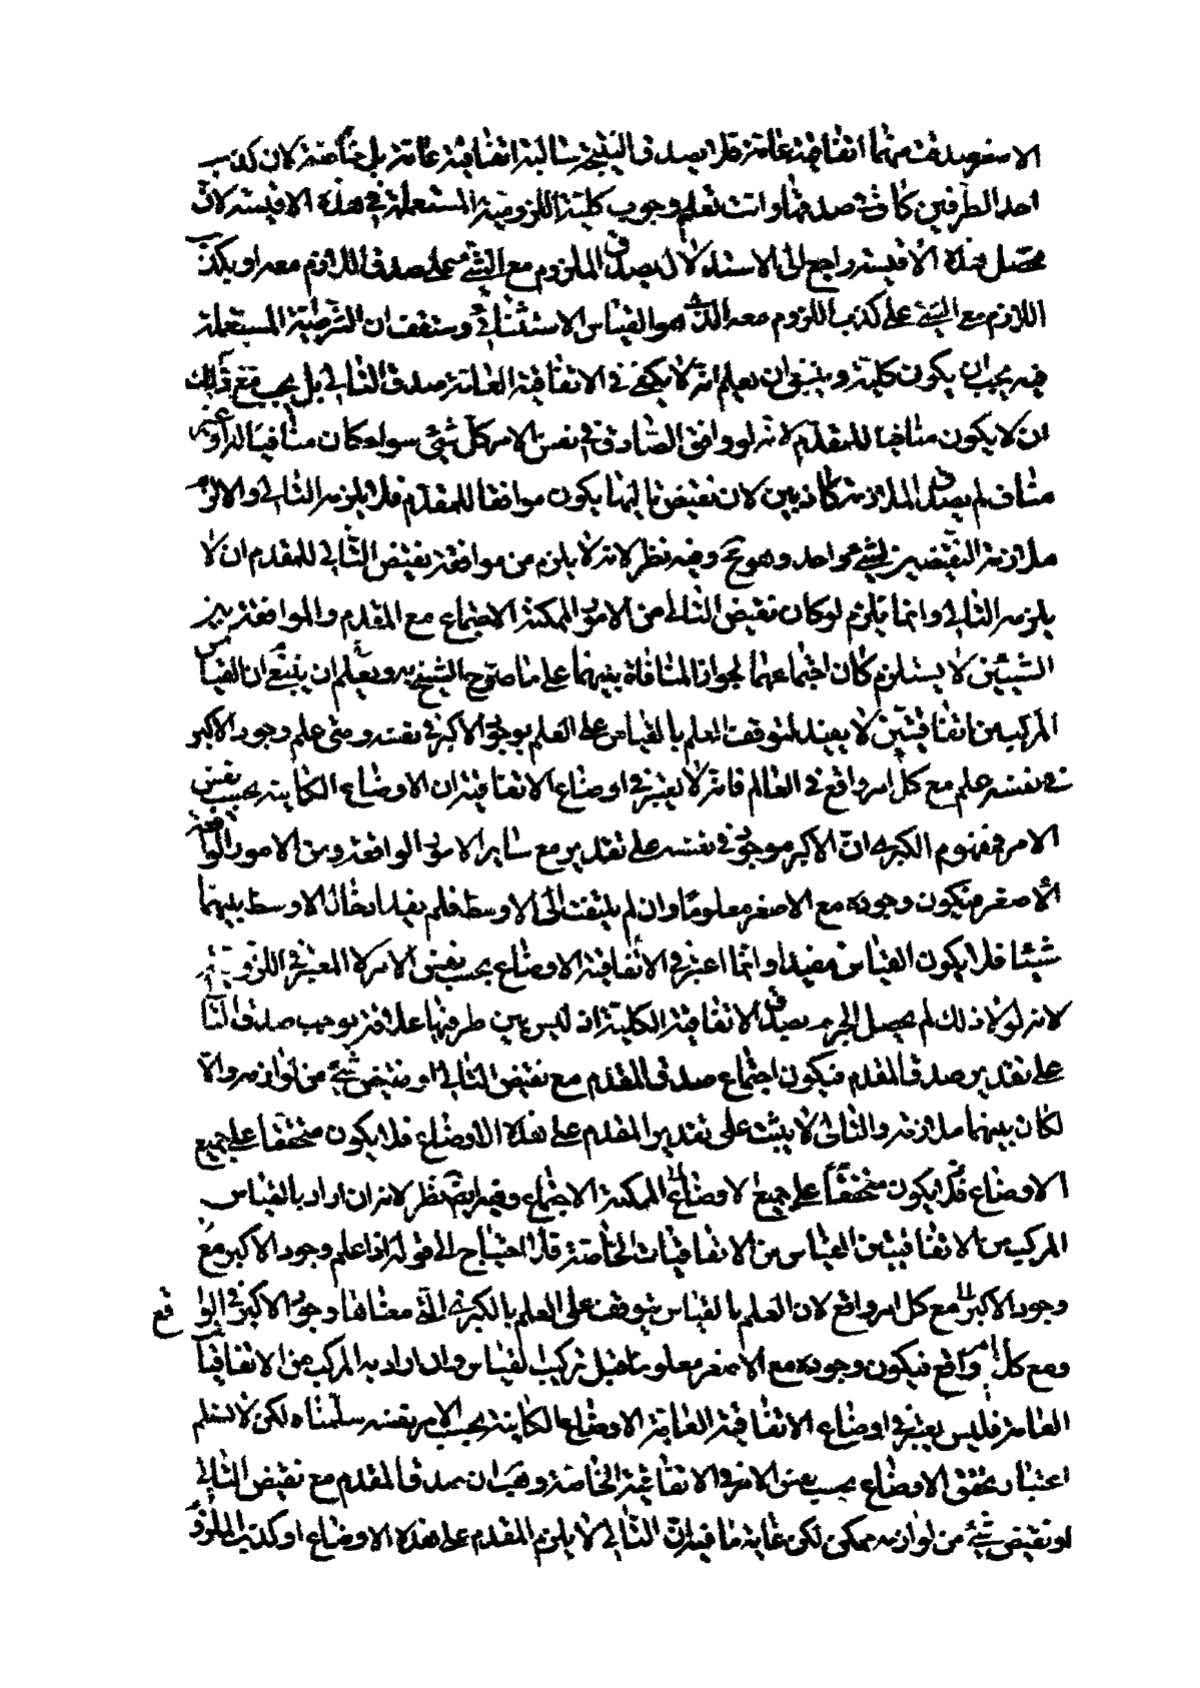 الاصغر صدقت منهما اتفاقية عامة فلا يصدق في النتيجة سالبة اتفاقية عامة بل خاصة لان كذب
احد الطرفين كاف في صدقها وانت تعلم وجوب كلية اللزومية المستعملة في هذه الاقيسة لان
محصل هذه الاقيسة راجع الى الاستدلال بصدق الملزوم مع الشئ على صدق اللازم معه او بكذب
اللازم مع الشئ على كذب الملزوم معه الذى هو القياس الاستثنائى وستقف ان الشرطية المستعملة
فيه يجب ان يكون كلية وينبغى ان يعلم انه لا يكفى في الاتفاقية العامة صدق التالى بل يجب مع ذلك
ان لا يكون منافيا للمقدم لانه لو وافق الصادق في نفس الامر كل شئ سواء كان منافيا له او غير
مناف لم يصدق الملازمة كاذبين لان نقيض تاليهما يكون موافقا للمقدم فلا يلزمه التالى والا لزم
ملازمة النقيضين لشئ واحد وهو مح وفيه نظر لانه لا يلزم من موافقة نقيض التالى للمقدم ان لا
يلزمه التالى وانما يلزم لو كان نقيض التالى من الامور الممكنة الاجتماع مع المقدم والموافقة بين
الشيئين لا يستلزم كان اجتماعهما لجواز المنافاة بينهما على ما صرح الشيخ به ويعلم ان ينبغ ان القياس
المركب من اتفاقيتين لا يفيد لتوقف العلم بالقياس على العلم بوجود الاكبر في نفسه ومتى علم وجود الاكبر
في نفسه علم مع كل امر واقع في العالم فانه لا يعتبر في اوضاع الاتفاقية ان الاوضاع الكاينة بحسب نفس
الامر فمفهوم الكبرى ان الاكبر موجود في نفسه على تقدير مع ساير الامور الواقعة ومن الامور الواقعة
الاصغر فيكون وجوده مع الاصغر معلوما وان لم يلتفت الى الاوسط فلم يفد ادخال الاوسط بينهما
شيئا فلا يكون القياس مفيدا وانما اعتبر في الاتفاقية الاوضاع بحسب نفس الامر لا المعتبر في اللزومية
لانه لولا ذلك لم يحصل الجزم بصدق الاتفاقية الكلية اذ ليس بين طرفيها علاقة يوجب صدق التالى
على تقدير صدق المقدم فيكون اجتماع صدق المقدم مع نقيض التالى او نقيض شئ من لوازمه والا
لكان بينهما ملازمة والتالى لا يثبت على تقدير المقدم على هذه الاوضاع فلا يكون متحققا على جميع
الاوضاع فلا يكون متحققا على جميع الاوضاع الممكنة الاجتماع وفيه ايضا نظر لانه ان اراد بالقياس
المركب من الاتفاقيتين القياس من الاتفاقيات الخاصة فلا احتياج الى قوله اذا علم وجود الاكبر مع
وجود الاكبر مع كل امر واقع لان العلم بالقياس يتوقف على العلم بالكبرى التى معناها وجود الاكبر في الواقع
ومع كل امر واقع فيكون وجوده مع الاصغر معلوما قبل تركيب القياس وان اراد به المركب من الاتفاقيات
العامة فليس يعتبر في اوضاع الاتفاقية العامة الاوضاع الكاينة بحسب الامر نفسه سلمناه لكن لا نسلم
اعتبار تحقق الاوضاع بحسب نفس الامر في الاتفاقية الخاصة وهب ان صدق المقدم مع نقيض التالى
او نقيض شئ من لوازمه ممكن لكن غاية ما فيه ان التالى لا يلزم المقدم على هذه الاوضاع او كذب الملزوم